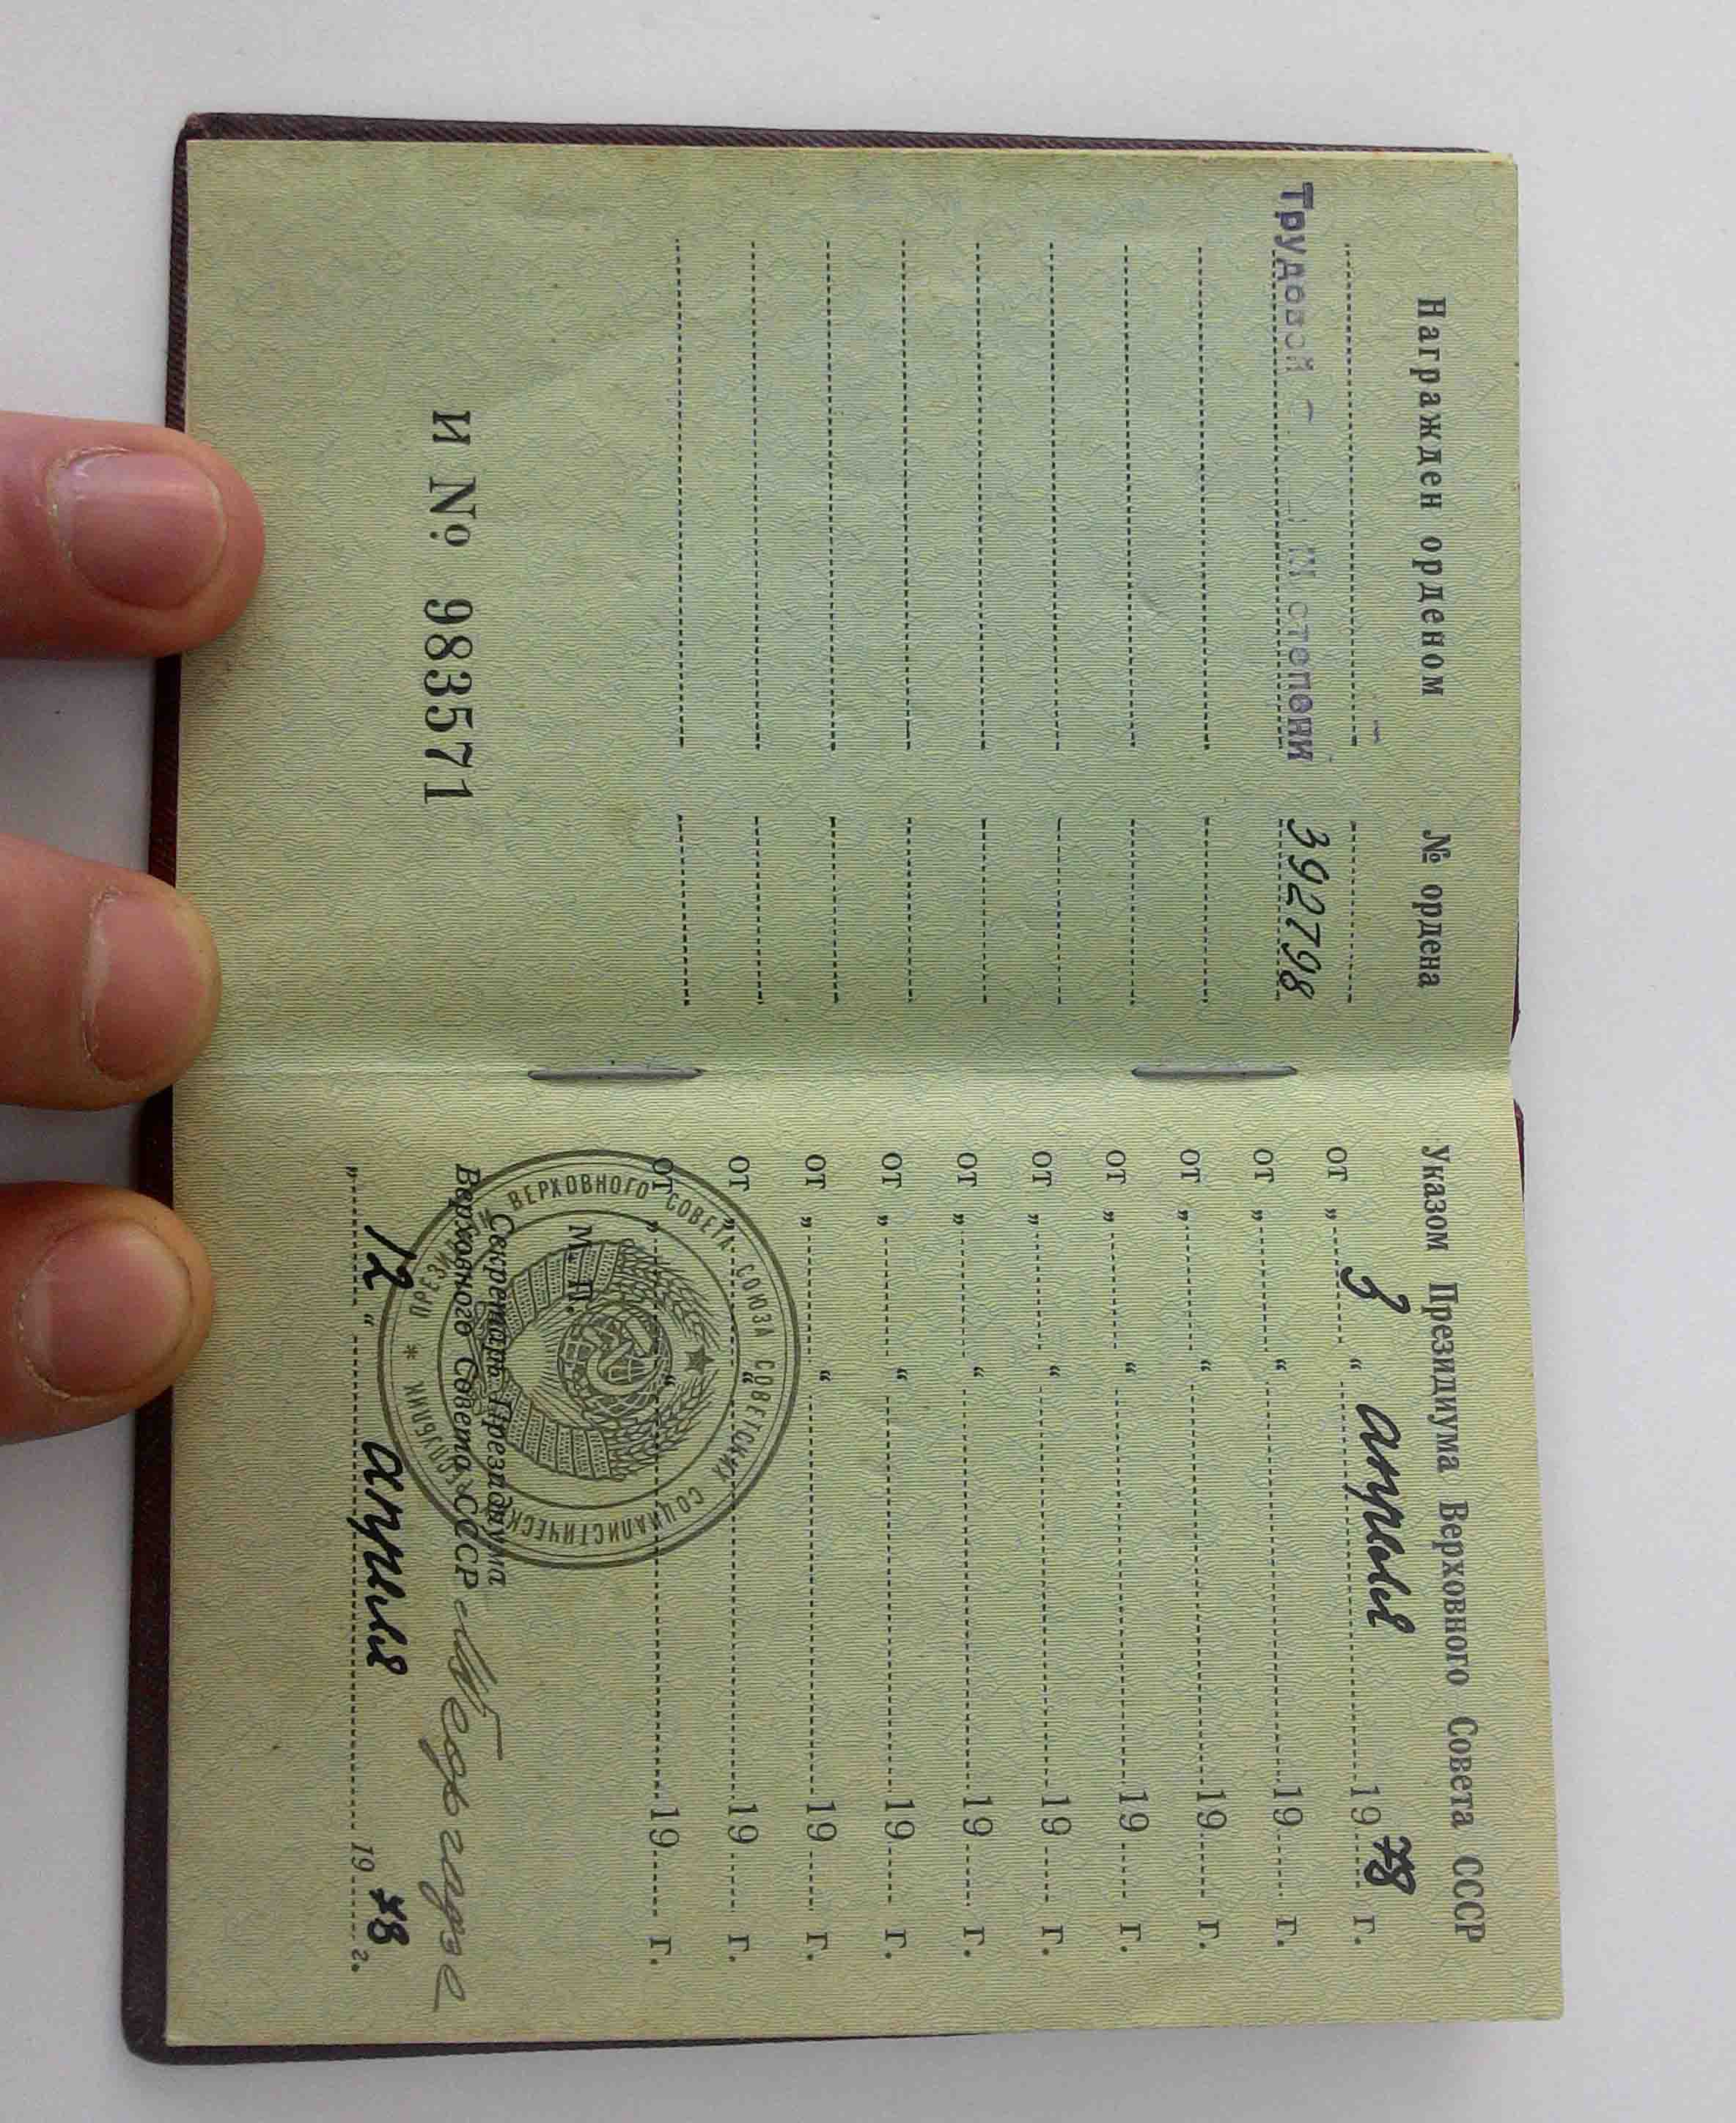 Награжден орденом № ордена
Трудовой степени 392798
И № 983571
Указом Президиума Верховного Совета СССР
от „ 3 “ апреля 1978 г.
от „ “ 19 г.
от „ “ 19 г.
от „ “ 19 г.
от „ “ 19 г.
от „ “ 19 г.
от „ “ 19 г.
от „ “ 19 г.
от „ “ 19 г.
от „ “ 19 г.
М. П.
ПРЕЗИДИУМ ВЕРХОВНОГО СОВЕТА СОЮЗА СОВЕТСКИХ СОЦИАЛИСТИЧЕСКИХ РЕСПУБЛИК
Секретарь Президиума
Верховного Совета СССР
„ 12 “ апреля 1978 г.